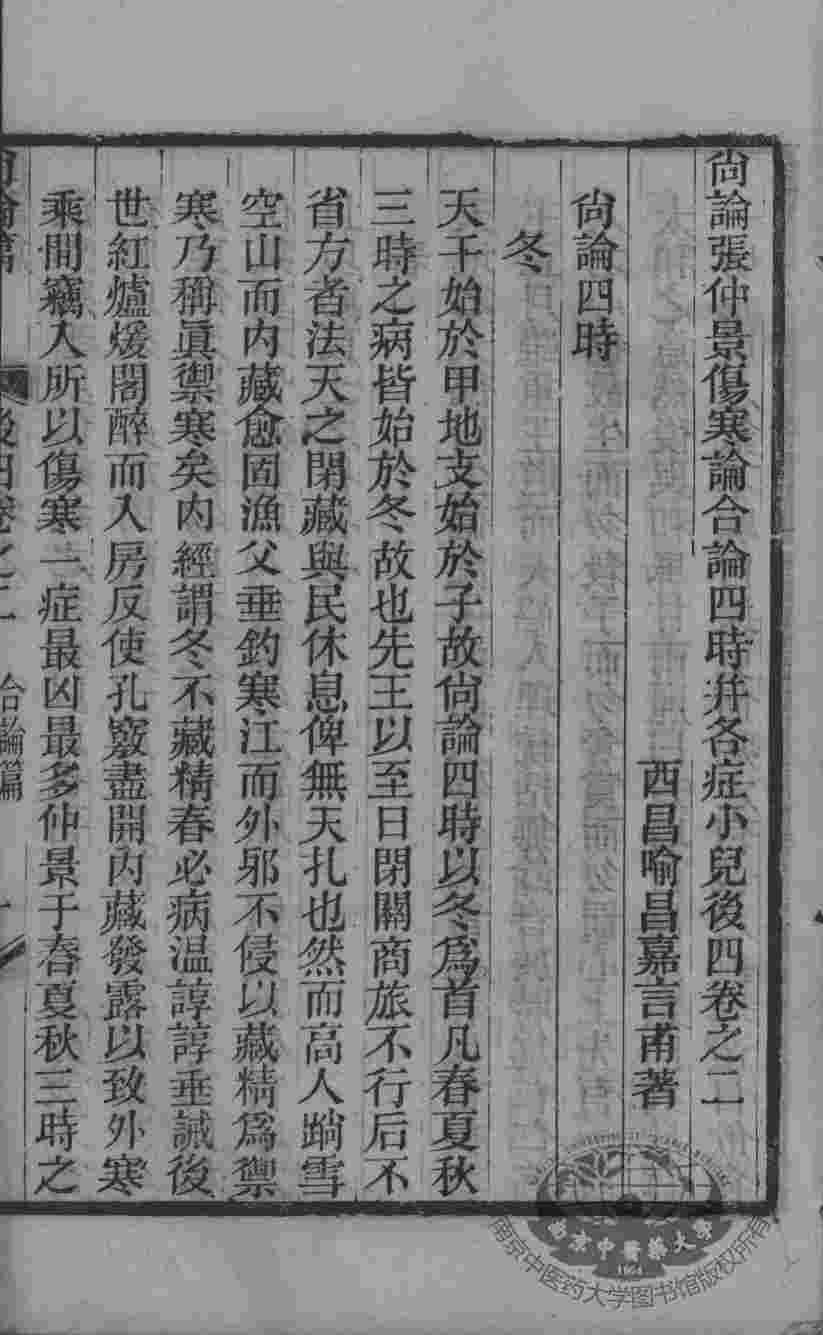 尙論張仲景傷寒論合論四時幷各症小兒後四卷之二
西昌喻昌嘉言甫著
尙論四時
冬
天干始於甲地支始於子故尙論四時以冬爲首凡春夏秋
三時之病皆始於冬故也先王以至日閉關商旅不行后不
省方者法天之閉藏與民休息俾無夭扎也然而高人蹋雪
空山而內藏愈固漁父垂釣寒江而外邪不侵以藏精爲禦
寒乃稱眞禦寒矣內經謂冬不藏精春必病温諄諄垂誡後
世紅爐煖閣醉而入房反使孔竅盡開內藏發露以致外寒
乘間竊入所以傷寒一症最凶最多仲景于春夏秋三時之
後四卷之二 合論篇 一
南京中醫藥大學
1954
南京中医药大学图书馆版权所有